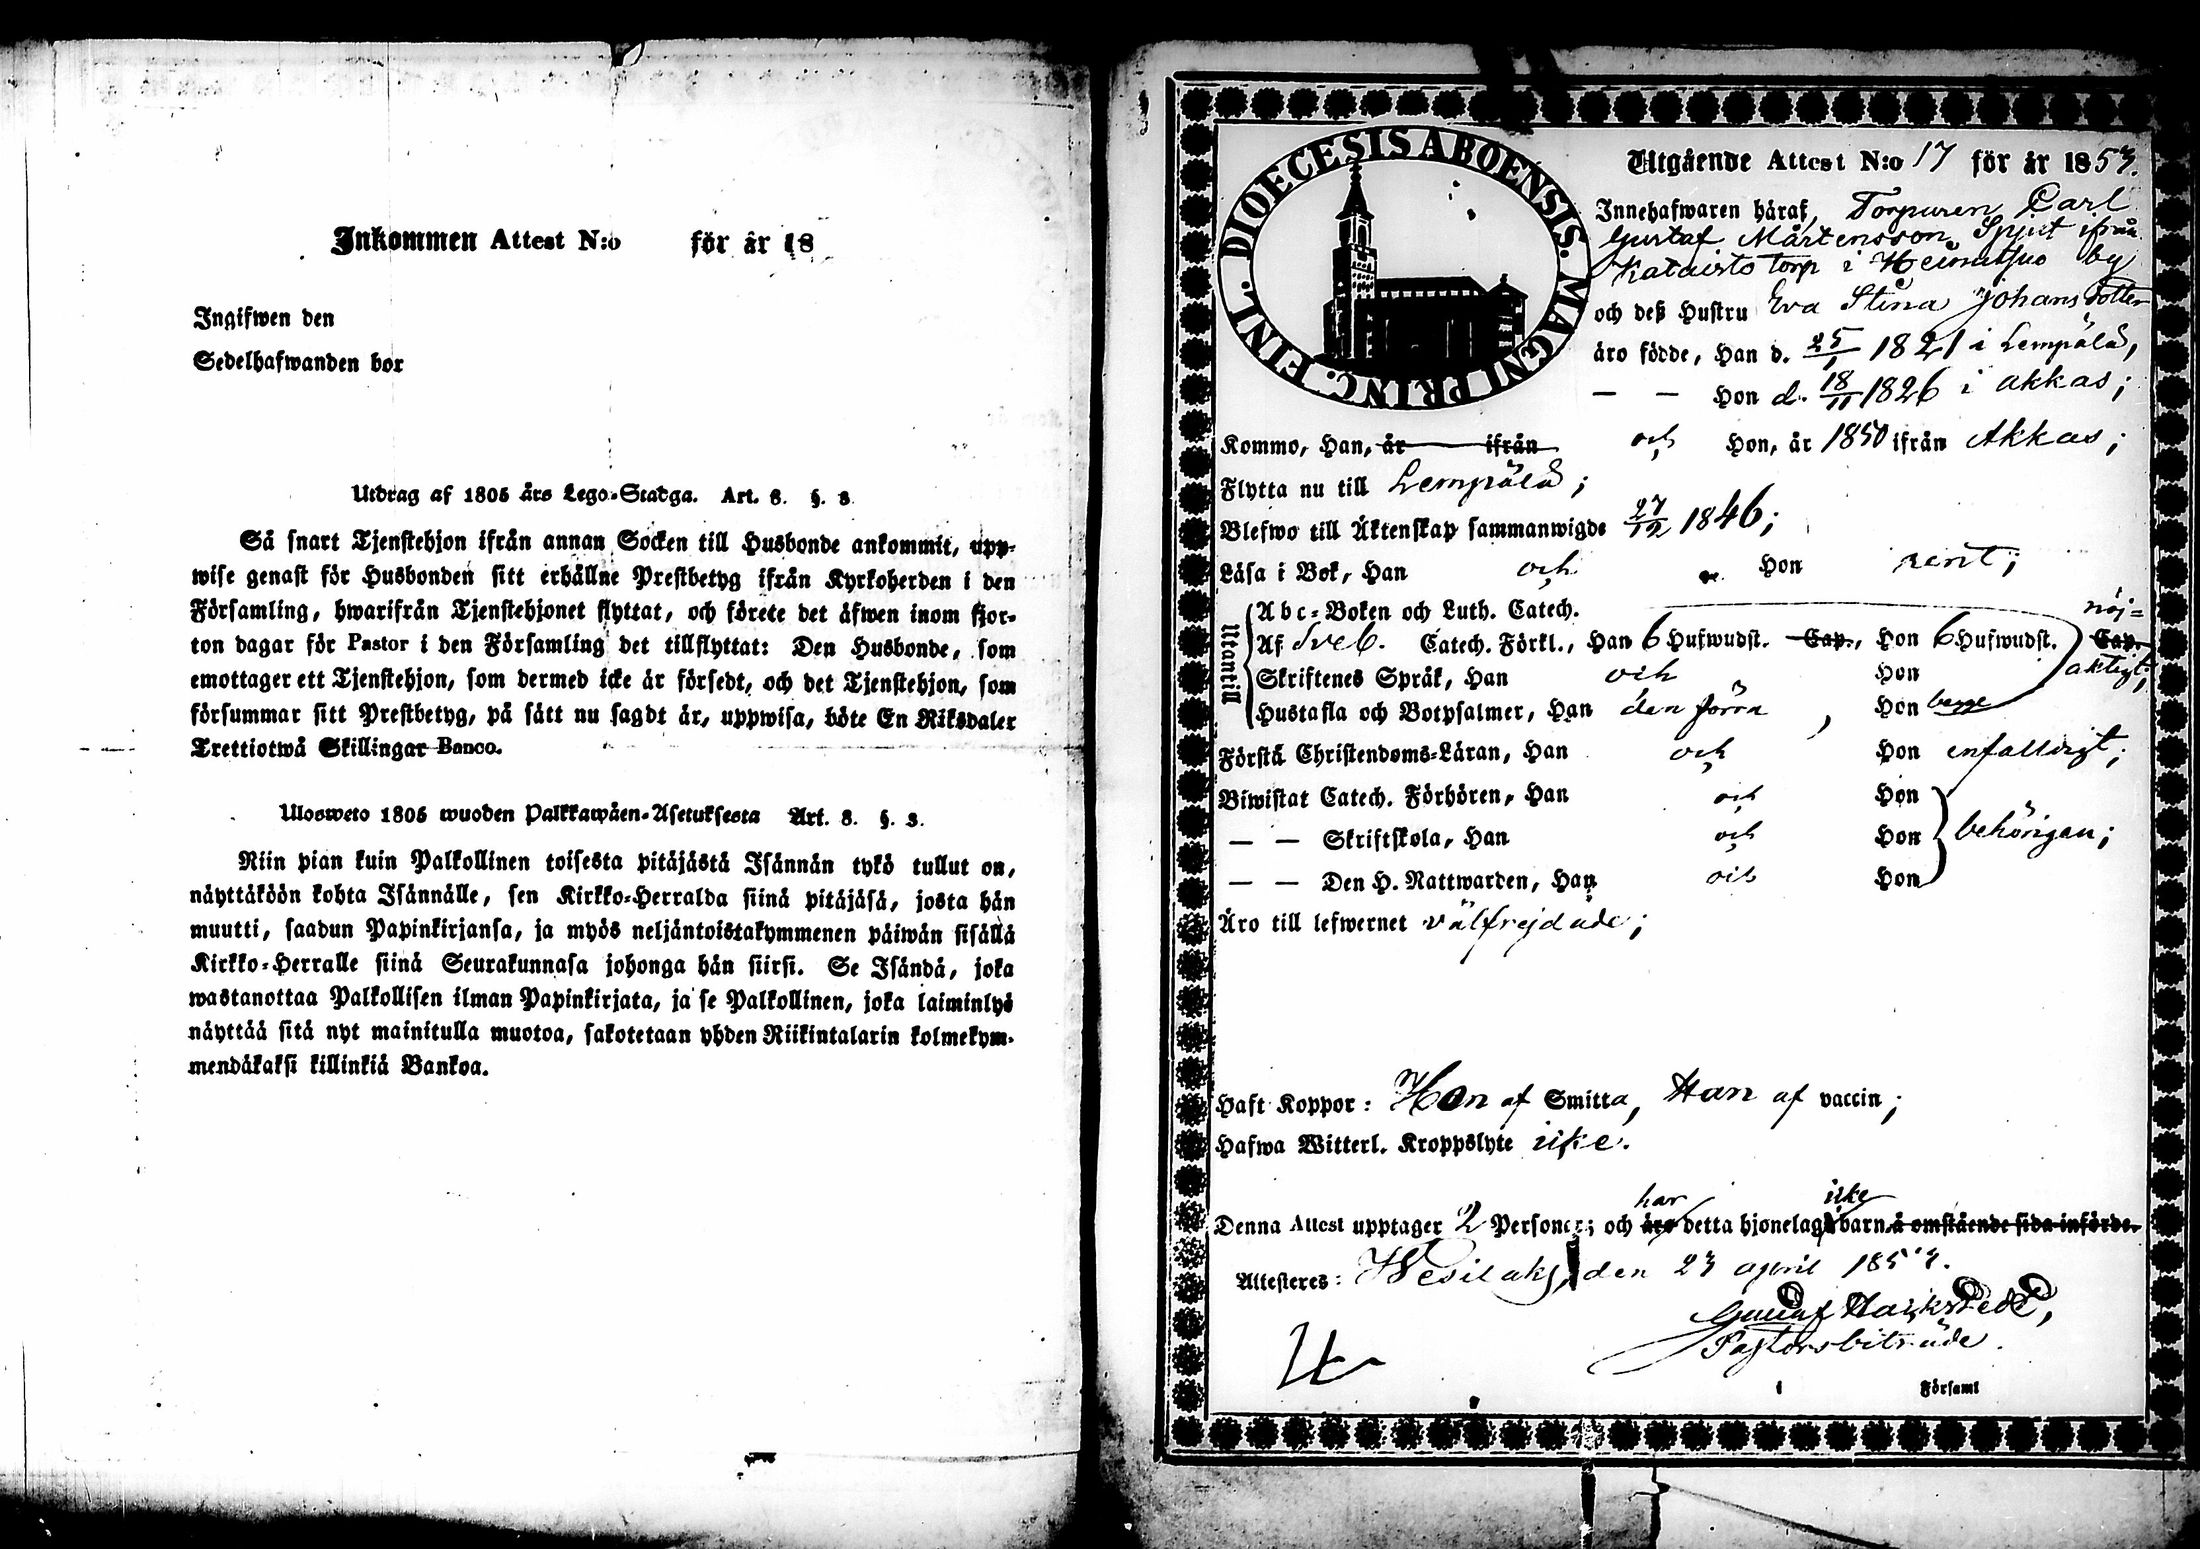 Inkommen Attest N:o för år 18
Ingifwen den
Sedelhafwanden bor
Utdrag af 1805 års Lego-Stadga. Art. 8. §. 3.
Så snart Tjenstehjon ifrån annan Socken till Husbonde ankommit, upp-
wise genast för Husbonden sitt erhållne Prestbetyg ifrån Kyrkoherden i den
Församling, hwarifrån Tjenstehjonet flyttat, och förete det äfwen inom fjor-
ton dagar för Pastor i den Församling det tillflyttat: Den Husbonde, som
emottager ett Tjenstehjon, som dermed icke är försedt, och det Tjenstehjon, som
försummar sitt Prestbetyg, på sätt nu sagdt är, uppwisa, böte En Riksdaler
Trettiotwå Skillingar Banco.
Ulosweto 1805 wuoden Palkkawäen-Asetuksesta Art. 8. §. 3.
Niin pian kuin Palkollinen toisesta pitäjästä Isännän tykö tullut on,
näyttäköön kohta Isännälle, sen Kirkko-Herralda siinä pitäjäsä, josta hän
muutti, saadun Papinkirjansa, ja myös neljäntoistakymmenen päiwän sisällä
Kirkko-Herralle siinä Seurakunnasa johonga hän siirsi. Se Isändä, joka
wastanottaa Palkollisen ilman Papinkirjata, ja se Palkollinen, joka laiminlyö
näyttää sitä nyt mainitulla muotoa, sakotetaan yhden Riikintalarin kolmekym-
mendäkaksi killinkiä Bankoa.
DIOECESIS ABOENSIS. MAGNI PRINC. FINL.
Utgående Attest N:o 17 för år 1853.
Innehafwaren häraf, Torparen Carl
Gustaf Mårtensson ifrån
torp i by
och deß Hustru Eva Stina Johansdotter
äro födde, Han d. 25/1 1821 i Lempälä,
— — Hon d. 18/11 1826 i Akkas;
Kommo, Han, år ifrån och Hon, år 1850 ifrån Akkas;
Flytta nu till Lempälä;
Blefwo till Äktenskap sammanwigde 27/12 1846;
Läsa i Bok, Han och Hon rent;
Utantill
Abc-Boken och Luth. Catech.
Af Sveb. Catech. Förkl., Han 6 Hufwudst. Cap., Hon 6 Hufwudst. Cap.
Skriftenes Språk, Han och Hon nöj-aktigt;
Hustafla och Botpsalmer, Han den förra, Hon begge
Förstå Christendoms-Läran, Han och Hon enfalldigt;
Biwistat Catech. Förhören, Han och Hon
— — Skriftskola, Han och Hon behörigen;
— — Den H. Nattwarden, Han och Hon
Äro till lefwernet välfrejdade;
Haft Koppor: Hon af Smitta, Han af vaccin;
Hafwa Witterl. Kroppslyte icke.
Denna Attest upptager 2 Personer; och äro har detta hjonelag icke barn å omstående sida införde.
Attesteres: Wesilaks, den 23 april 1853.
Gustaf
Pastorsbiträde.
i Församl